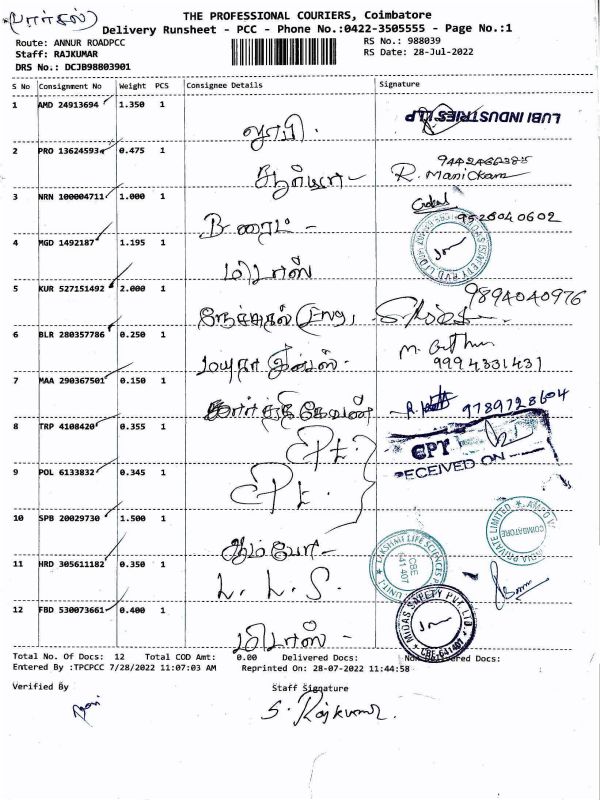 (பார்சல்)
THE PROFESSIONAL COURIERS, Coimbatore
Delivery Runsheet - PCC - Phone No.:0422-3505555 - Page No.:1
Route: ANNUR ROADPCC RS No.: 988039
Staff: RAJKUMAR RS Date: 28-Jul-2022
DRS No.: DCJB98803901
S No Consignment No Weight PCS Consignee Details Signature
1 AMD 24913694 1.350 1 லூபி. LUBI INDUSTRIES LLP
2 PRO 13624593 0.475 1 R. Manickam
3 NRN 100004711 1.000 1 B-ரைட் - 9528040602
4 MGD 1492187 1.195 1 மிடாஸ்
5 KUR 527151492 2.000 1 9894040976
6 BLR 280357786 0.250 1 9994331431
7 MAA 290367501 0.150 1 9789728604
8 TRP 4108420 0.355 1 CPT. CPT RECEIVED ON
9 POL 6133832 0.345 1 CPT.
10 SPB 20029730 1.500 1 ஆம்போ -
11 HRD 305611182 0.350 1 L. L. S.
LAKSHMI LIFE SCIENCES CBE 641 407 UNIT-I
COIMBATORE
12 FBD 530073661 0.400 1 மிடாஸ் - MIDAS SAFETY PVT LTD. CBE-641407
Total No. Of Docs: 12 Total COD Amt: 0.00 Delivered Docs: Non Delivered Docs:
Entered By :TPCPCC 7/28/2022 11:07:03 AM Reprinted On: 28-07-2022 11:44:58
Verified By Staff Signature
S. Rajkumar.